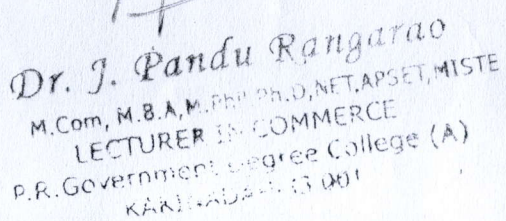 Dr. J. Pandu Rangarao
M.Com, M.B.A, M.Phil Ph.D, NET, APSET, MISTE
LECTURER IN COMMERCE
P.R. Government Degree College (A)